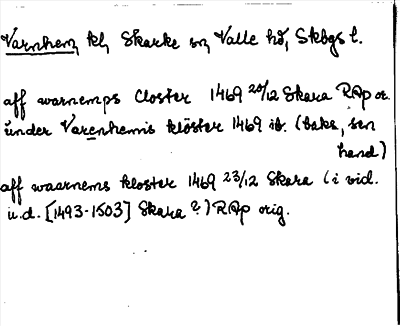 Varnhem, kl, Skarke sn, Valle hd, Skbgs l.
aff warnemps Closter 1469 20/12 Skara RAp or.
under Varenhemis klöster 1469 ib. (baks, sen
hand)
aff waarnems kloster 1469 23/12 Skara (i vid.
u.d. [1493-1503] Skara?) RAp orig.